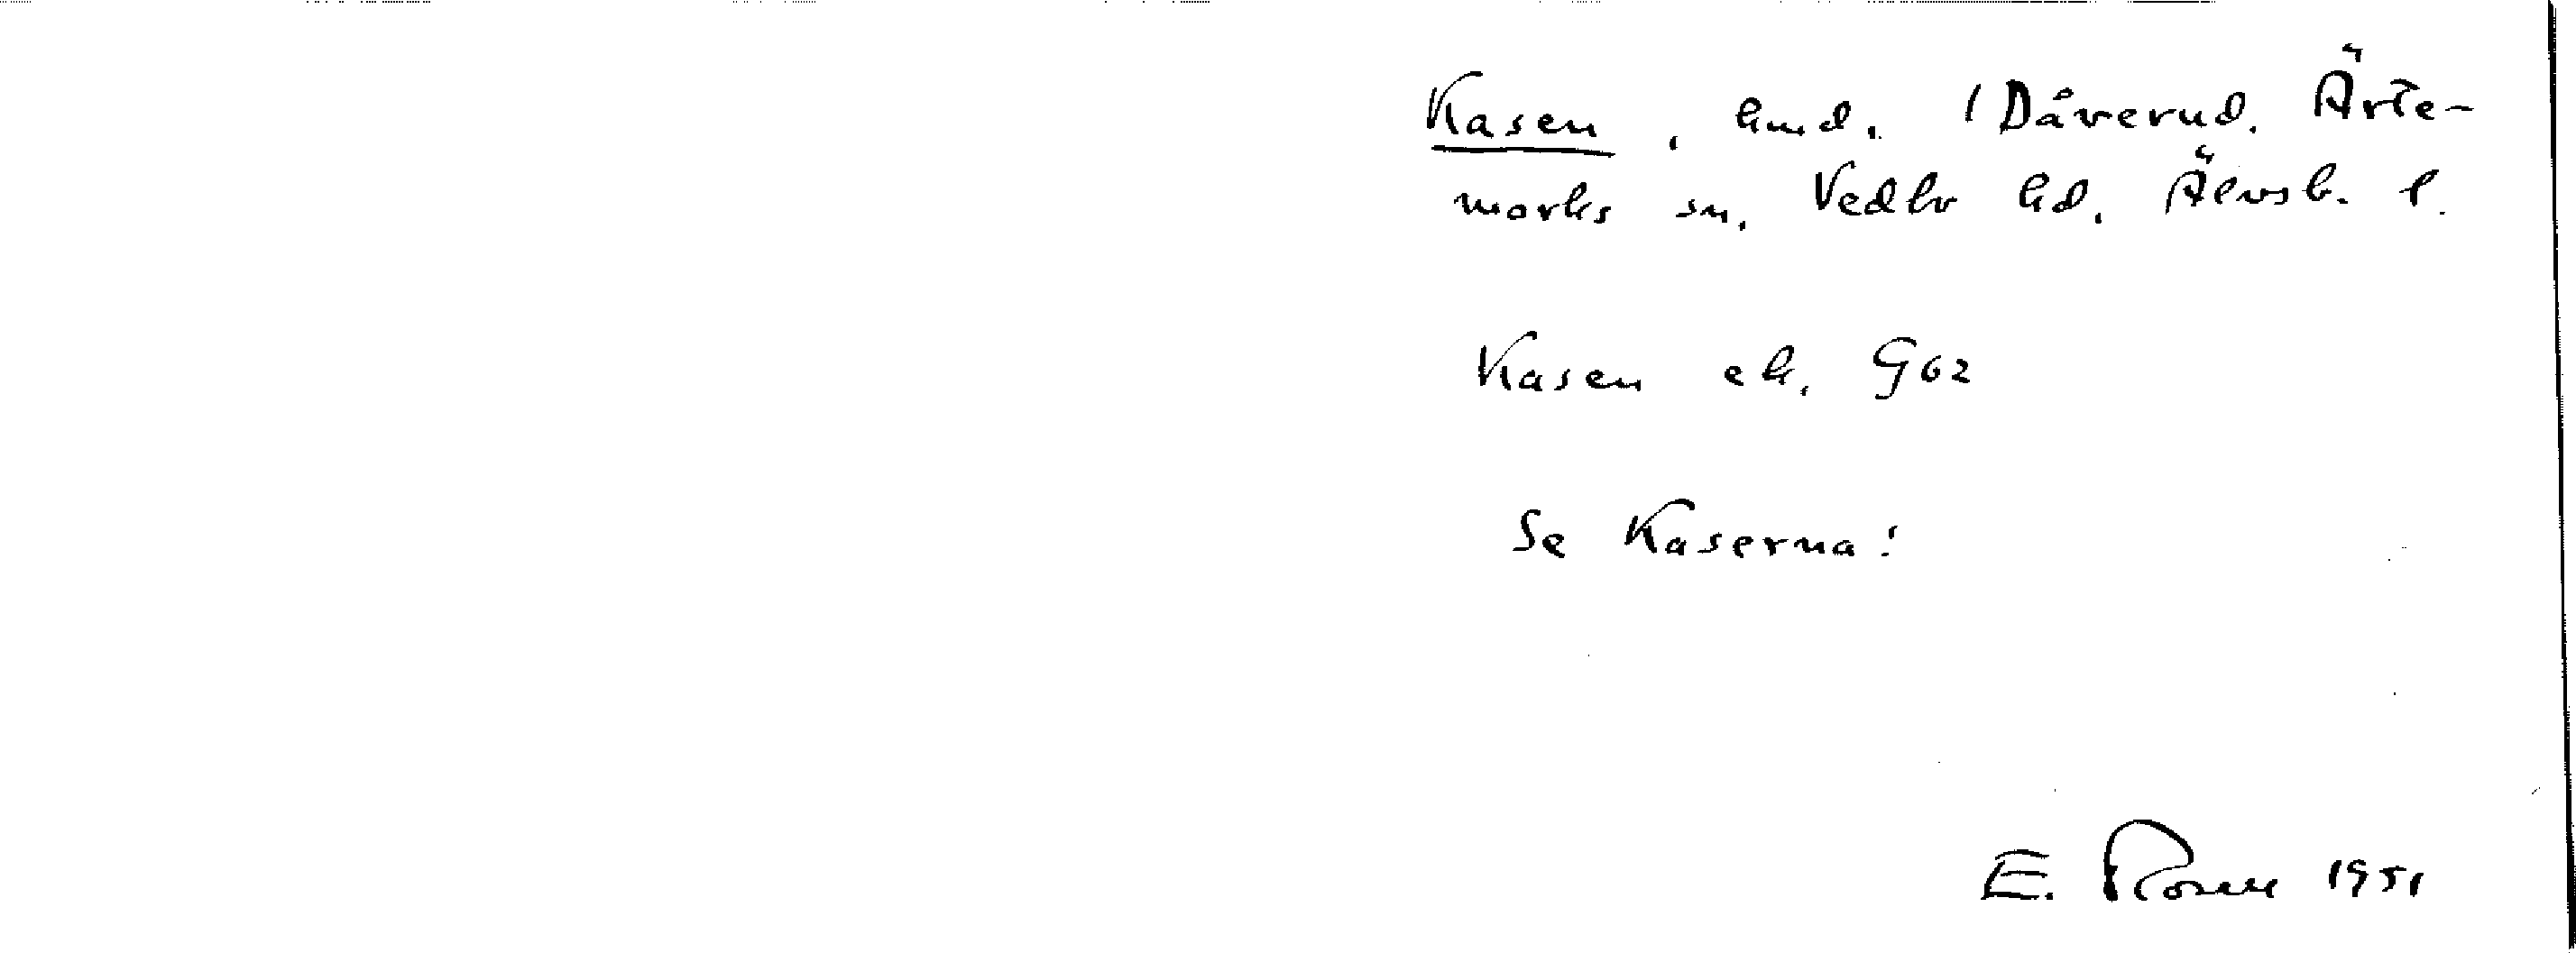 Kasen, hmd. (Dåverud. Ärte-
marks sn. Vedbo hd. Älvsb. l.
Kasen ek. G62
Se Kaserna!
E. Rosell 1951